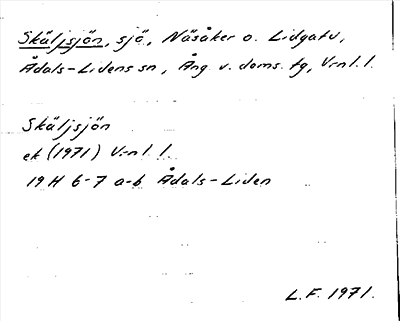 Skäljsjön, sjö, Näsåker o. Lidgatu,
Ådals-Lidens sn, Ång. v. doms. tg, Vrnl. l.
Skäljsjön
ek (1971) Vrnl. l.
19H 6-7 a-b Ådals-Liden
L.F. 1971.